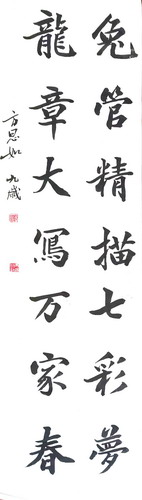 兔管精描七彩夢
龍章大寫万家春
方思如 九歲